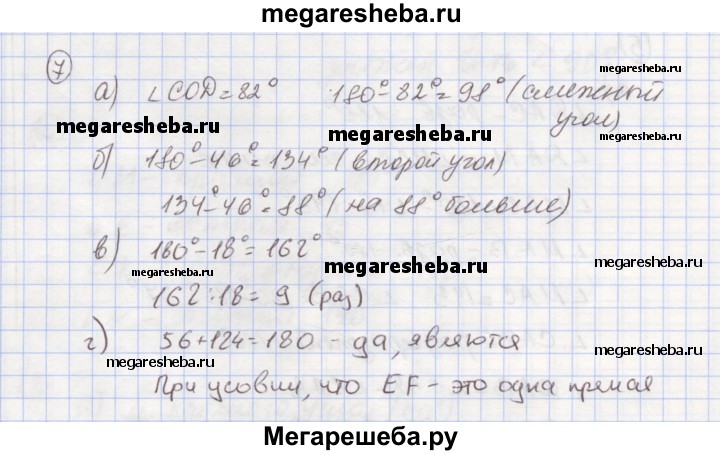 megaresheba.ru
7
а) ∠COD = 82° 180° - 82° = 98° (смежный
угол)
megaresheba.ru
megaresheba.ru megaresheba.ru
б) 180° - 46° = 134° (второй угол)
134° - 46° = 88° (на 88° больше)
в) 180° - 18° = 162°
megaresheba.ru megaresheba.ru megaresheba.ru
162 : 18 = 9 (раз)
г) 56 + 124 = 180 - да, являются
megaresheba.ru megaresheba.ru
При усовии, что EF - это одна прямая
Мегарешеба.ру